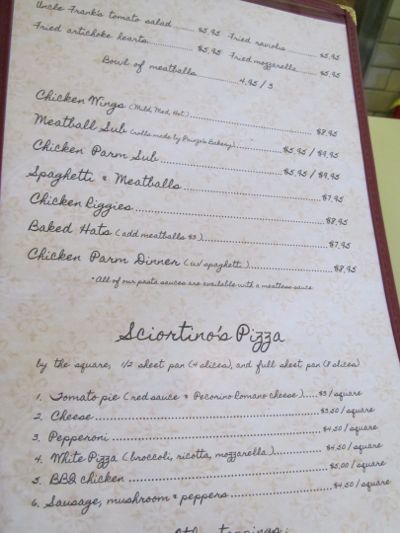 Uncle Frank's tomato salad ........ $5.95 Fried raviolis .......... $5.95
Fried artichoke hearts .............. $5.95 Fried mozzarella ...... $5.95
Bowl of meatballs .......... 4.95 / 3
Chicken Wings (Mild, Med, Hot) .......... $8.95
Meatball Sub (rolls made by Bakery) .......... $5.95 / $9.95
Chicken Parm Sub .......... $5.95 / $9.95
Spaghetti & Meatballs .......... $7.95
Chicken Riggies .......... $8.95
Baked Hats (add meatballs $3) .......... $7.95
Chicken Parm Dinner (w/ spaghetti) .......... $8.95
*All of our pasta sauces are available with a meatless sauce
Sciortino's Pizza
by the square, 1/2 sheet pan (4 slices), and full sheet pan (8 slices)
1. Tomato pie (red sauce & Pecorino Romano cheese) ..... $3 / square
2. Cheese .......... $3.50 / square
3. Pepperoni .......... $4.50 / square
4. White Pizza (broccoli, ricotta, mozzarella) .......... $4.50 / square
5. BBQ chicken .......... $5.00 / square
6. Sausage, mushroom & peppers .......... $4.50 / square
toppings: